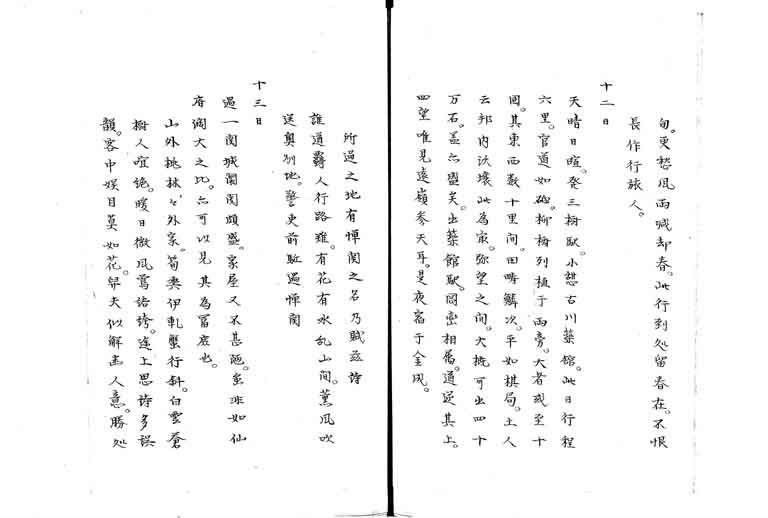 旬。更愁風雨喊却春。此行到処留春在。不恨
長作行旅人。
十二日
天晴日暄。発三梅駅。小憩古川薬館。此日行程
六里。官道如砥。柳梅列植于両旁。大者或至十
囲。其東西数十里間。田疇鱗次。平如棋局。土人
云邦内沃壌此為最。弥望之間。大概可出四十
万石。盖亦盛矣。出築館駅。岡密相属。道逆其上。
四望唯見遠嶺参天耳。是夜宿于金成。
所過之地有憚関之名乃賦茲詩
誰道羇人行路難。有花有水乱山間。薫風吹
送奥州地。誉吏前駈過憚関
十三日
過一関城闤闠頗盛。家屋又不甚陋。虽非如仙
府濶大之比。亦可以見其為冨庶也。
山外桃林々外家。筍輿伊軋蟹行斜。白雲蒼
樹人喧絶。暖日微風鶯語誇。途上思詩多誤
韻。客中娯目莫如花。舁夫似解幽人意。勝処